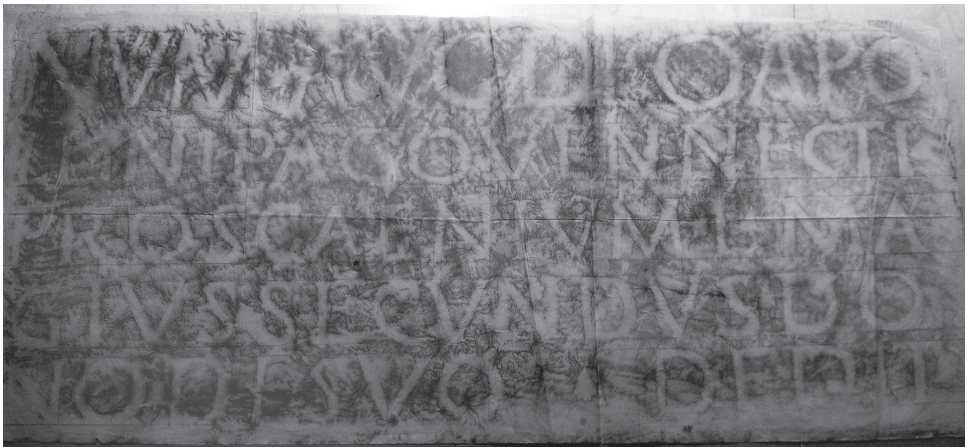 NVM AVG DEO APO
LLINI PAGO VENNECTI
PROSCAENIVM L MA
GIVS SECVNDVS DO
NO DE SVO DEDIT